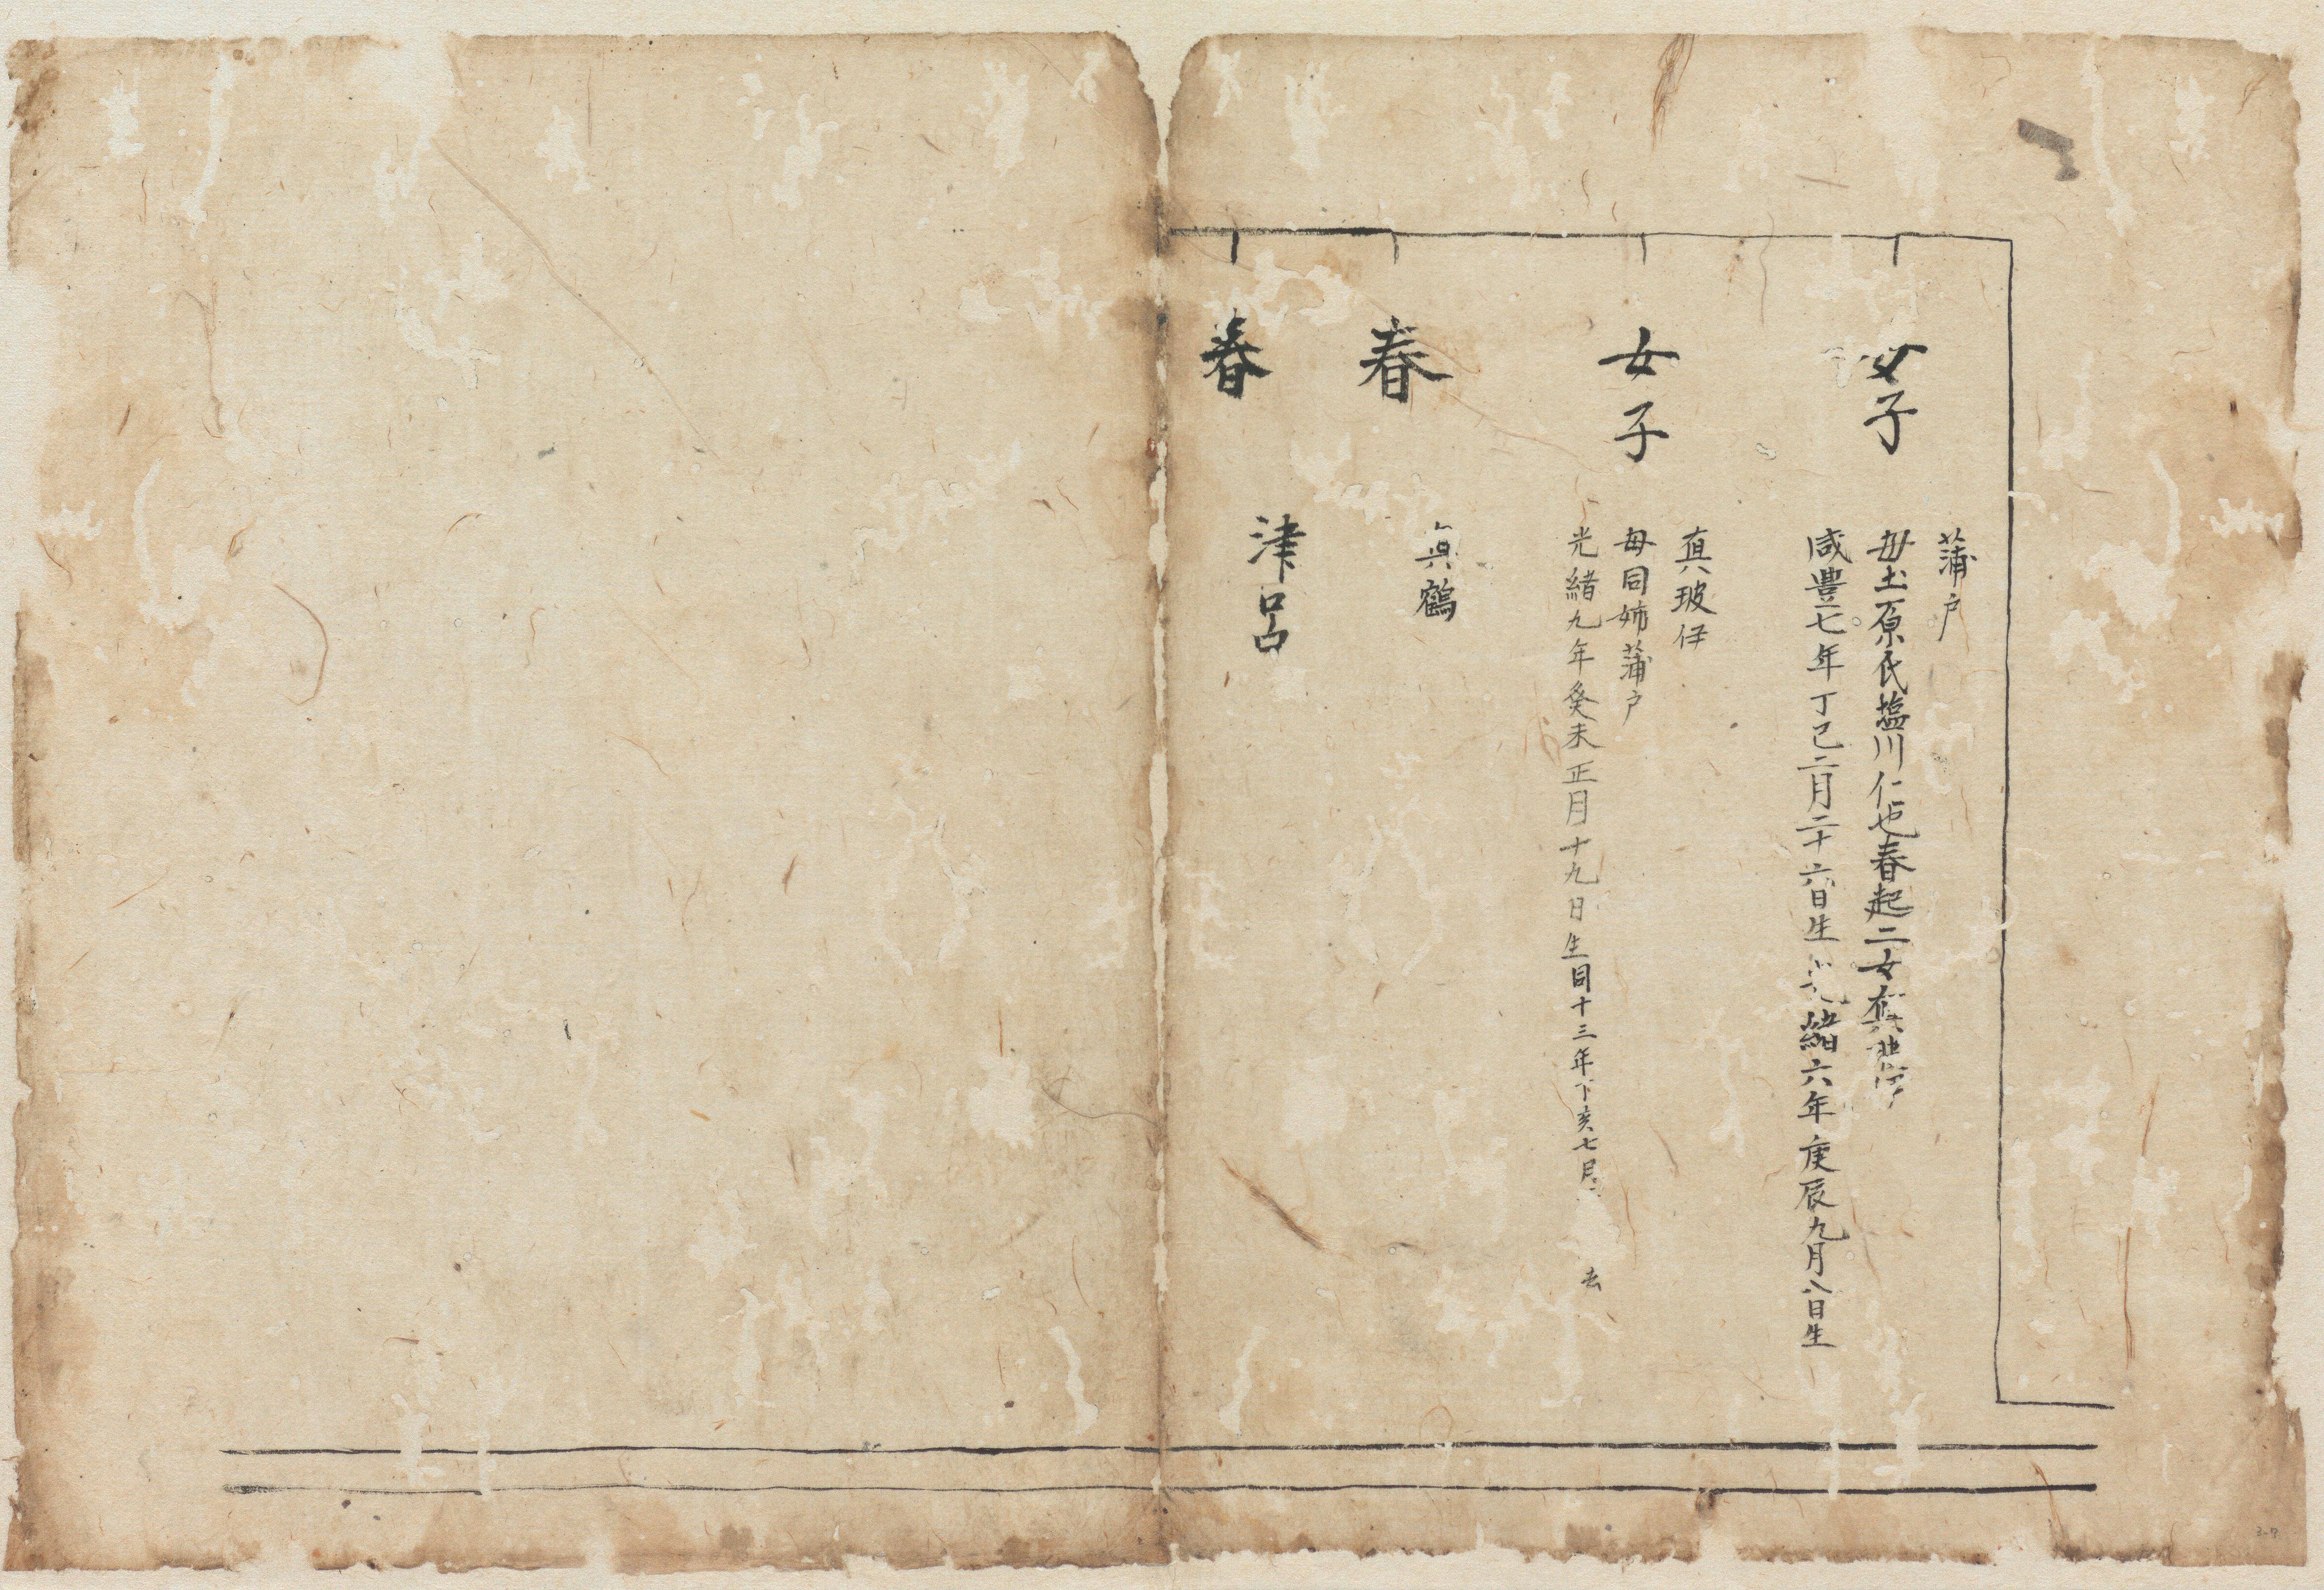 蒲戸
女子
母土原氏塩川仁屋春起二女真
咸豊七年丁巳二月二十六日生 緒六年庚辰九月八日生
真玻伊
女子
母同姉蒲戸
光緒九年癸未正月十九日生同十三年丁亥七月 去
真鶴
春
津呂
春